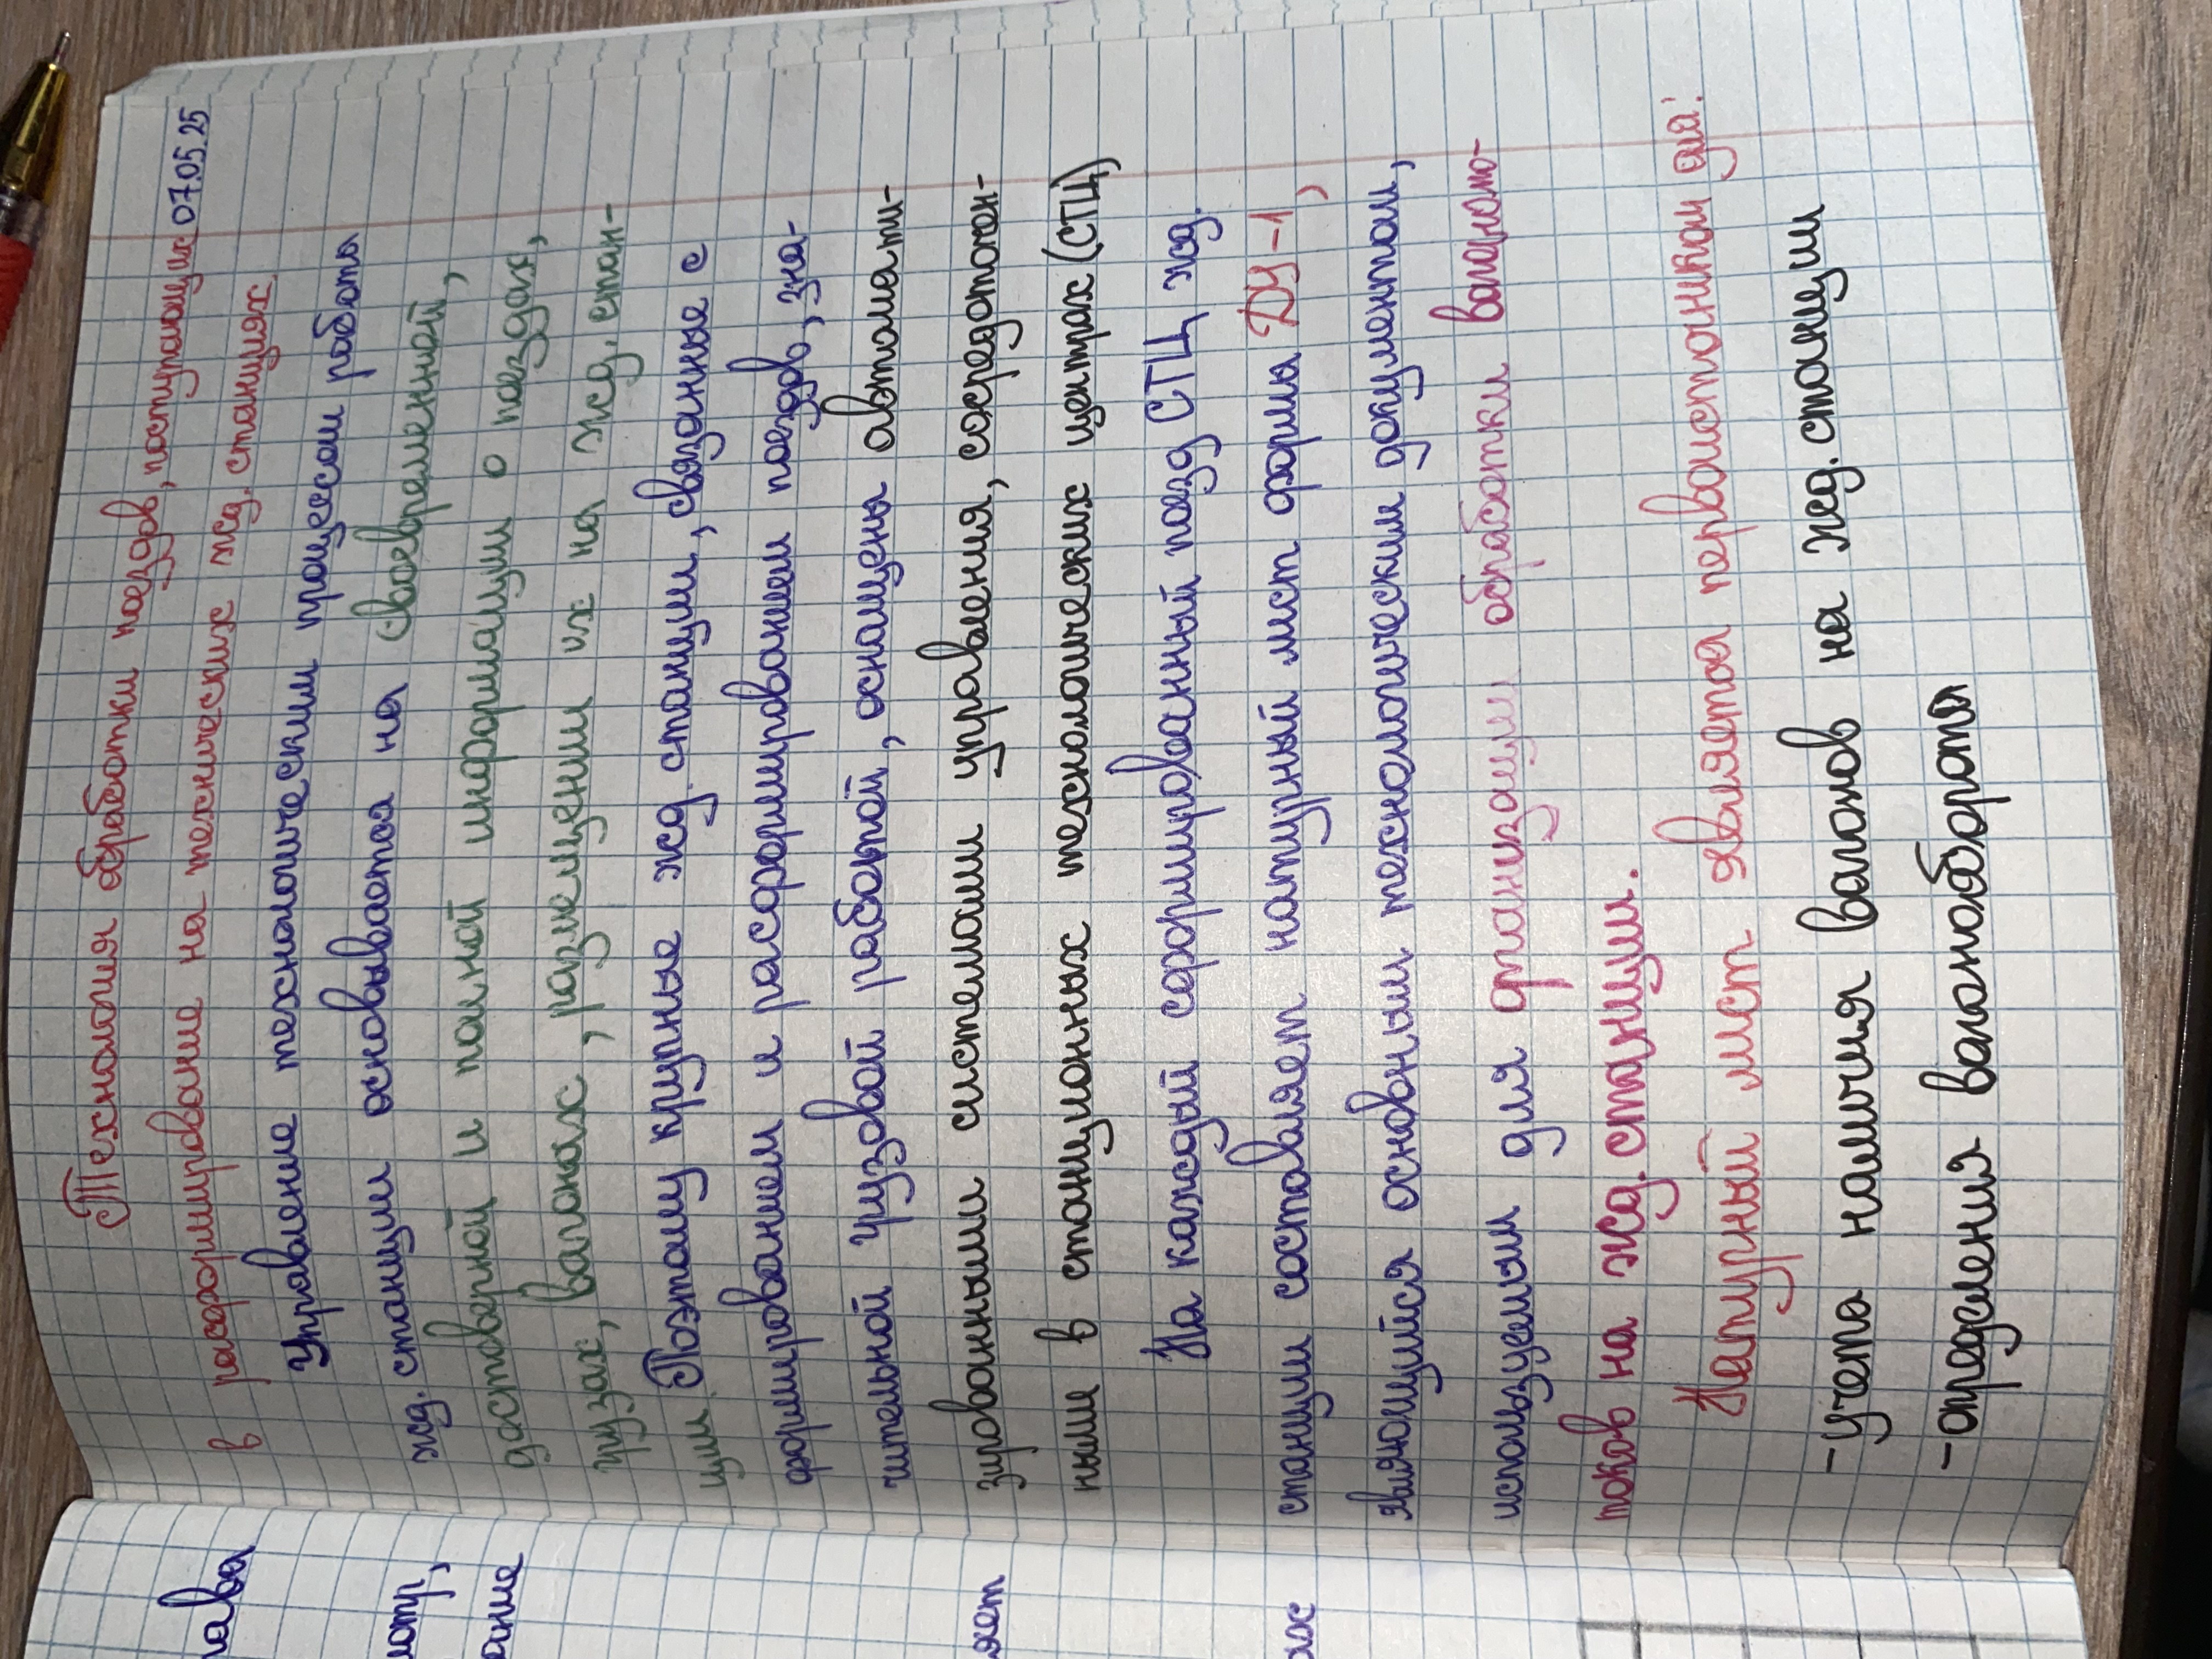 Технология обработки поездов, поступающих 07.05.25
в расформирование на технических жд. станциях.
Управление технологическим процессом работы
жд. станции основывается на своевременной,
достоверной и полной информации о поездах,
грузах, вагонах, размещении их на жд. стан-
ции. Поэтому крупные жд. станции, связанные с
формированием и расформированием поездов, зна-
чительной грузовой работой, оснащены автомати-
зированными системами управления, сосредоточен-
ными в станционных технологических центрах (СТЦ)
На каждый сформированный поезд СТЦ жд.
станции составляет натурный лист формы ДУ-1,
являющийся основным технологическим документом,
используемым для организации обработки вагонопо-
токов на жд. станции.
Натурный лист является первоисточником для:
-учета наличия вагонов на жд. станции
-определения вагонооборота
лава
мотр,
ание
яет
ых